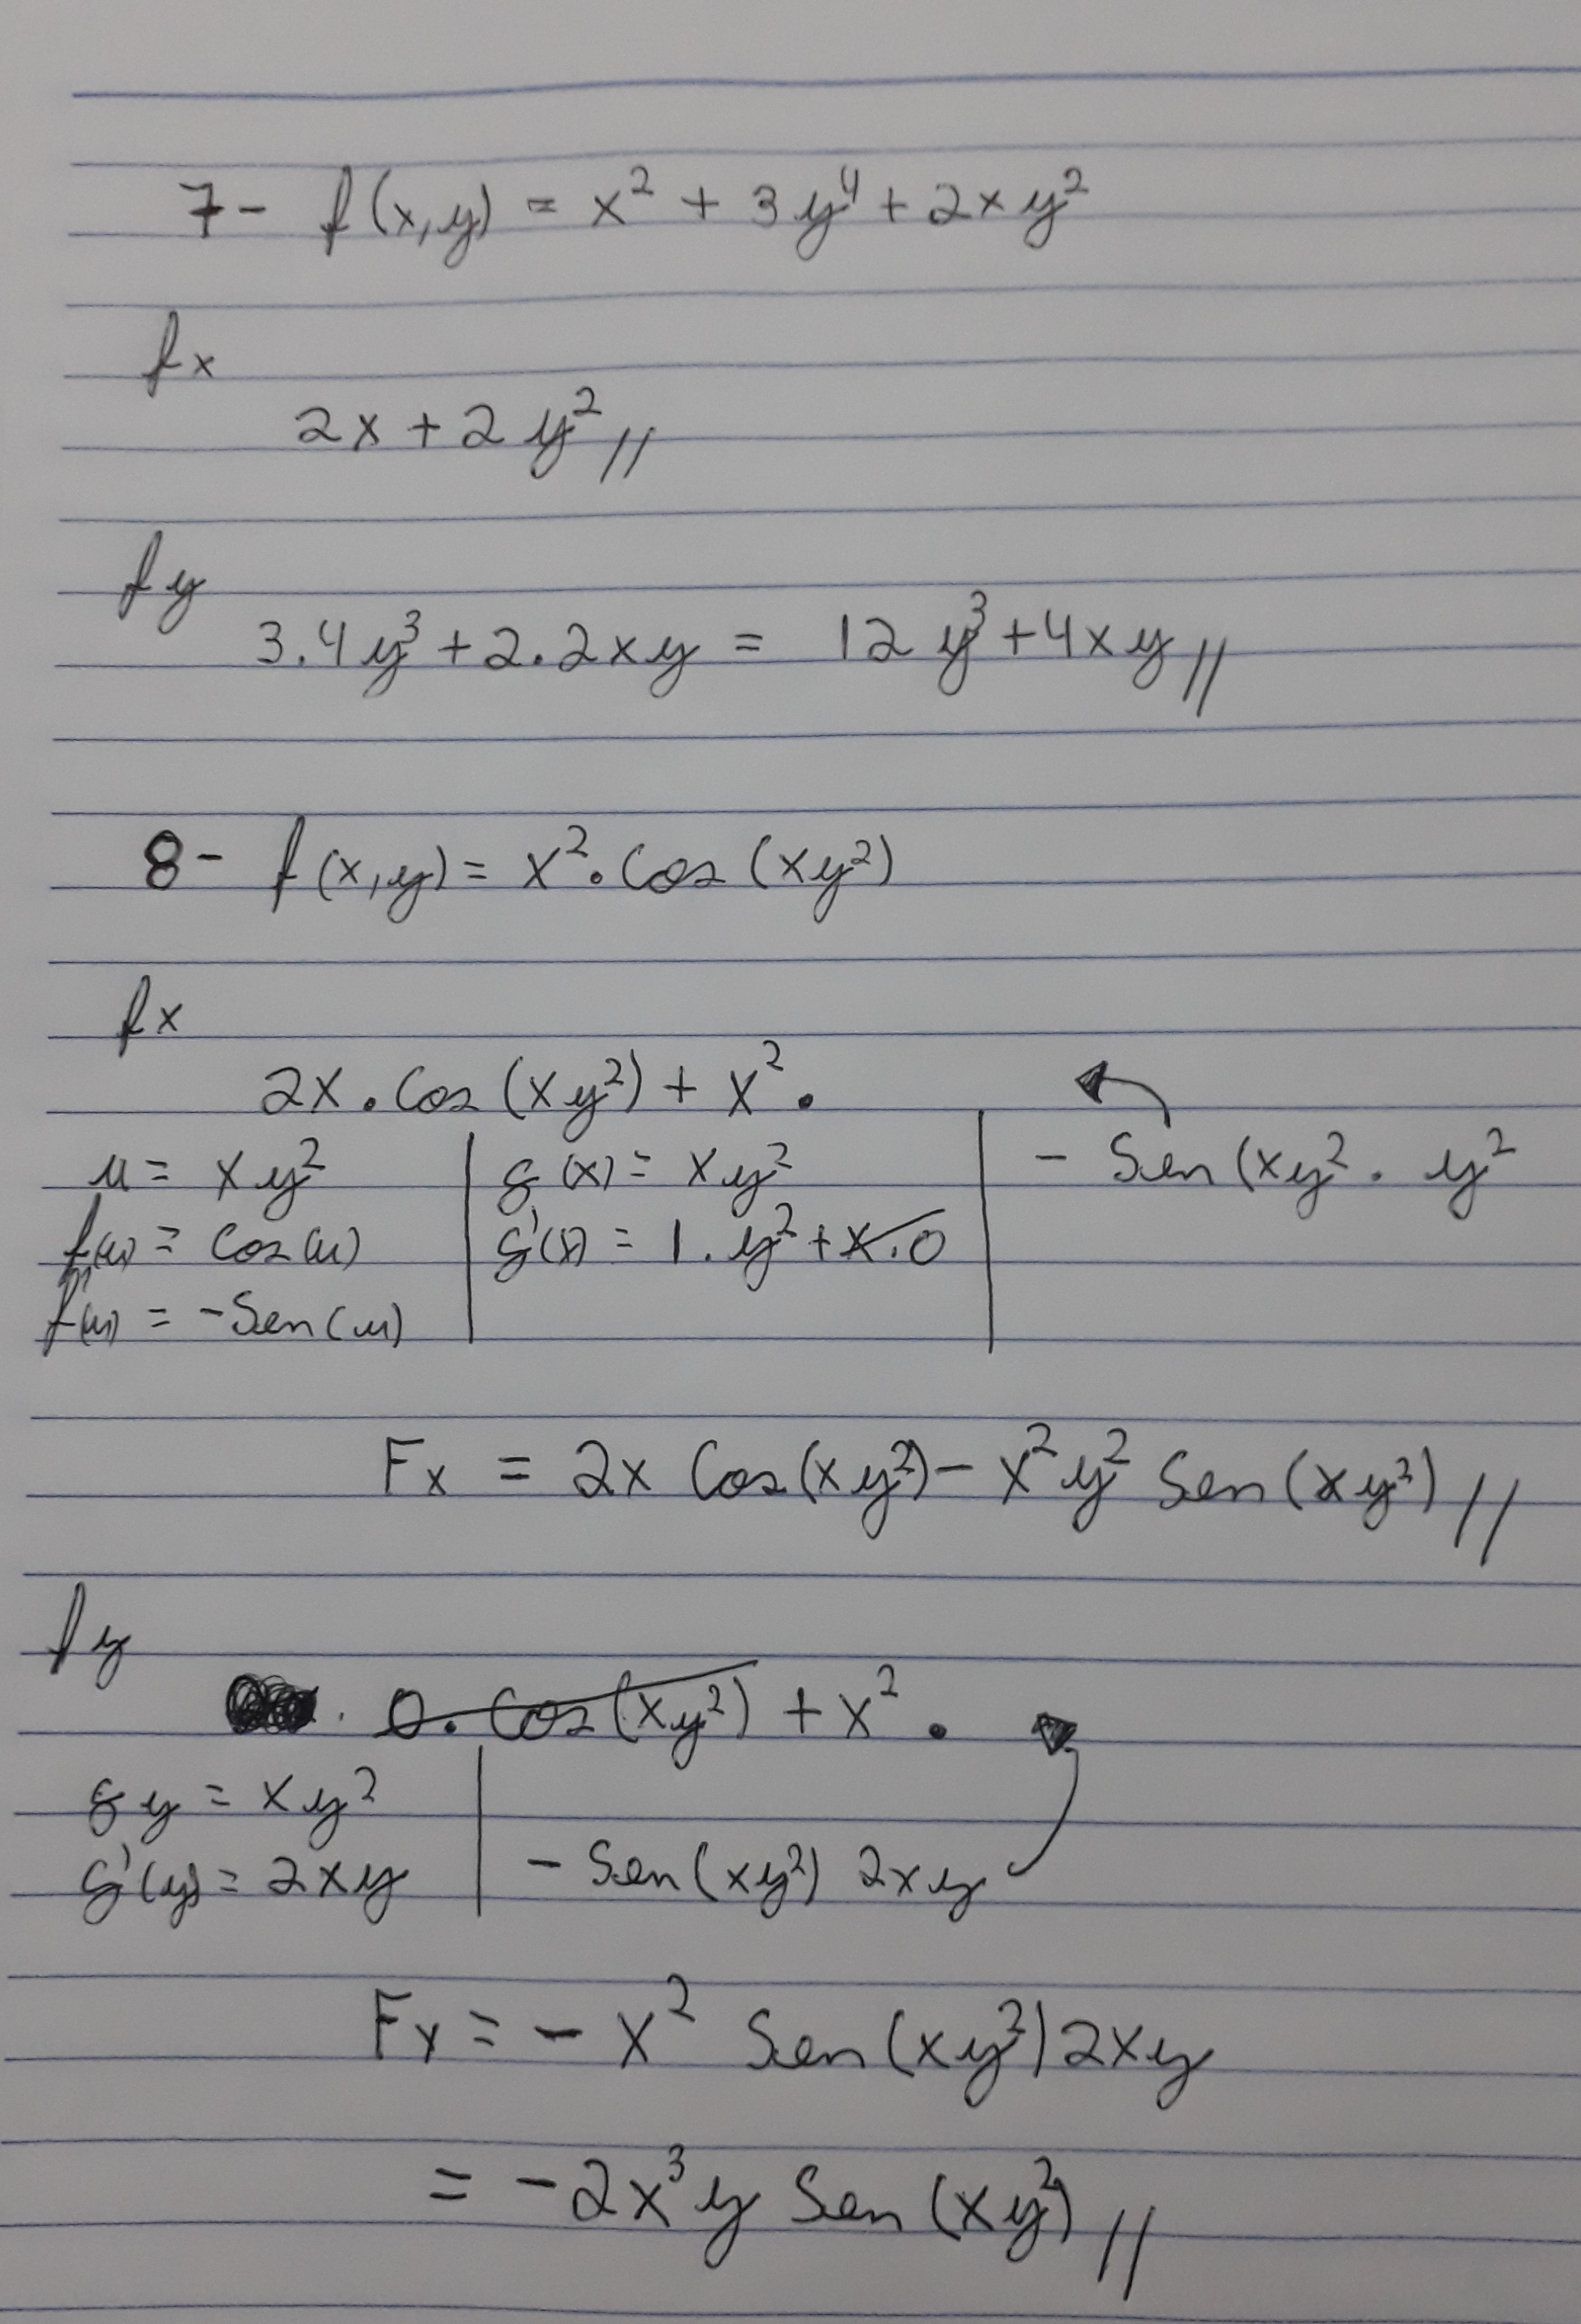 7- f(x,y) = x² + 3y⁴ + 2xy²
fx
2x + 2y² //
fy
3.4y³ + 2.2xy = 12y³ + 4xy //
8- f(x,y) = x² . Cos (xy²)
fx
2x . Cos (xy²) + x² .
u = xy² | g(x) = xy² | - Sen(xy² . y²
f(u) = Cos(u) | g'(x) = 1 . y² + x.0
f'(u) = -Sen(u)
Fx = 2x Cos(xy²) - x²y² Sen(xy²) //
fy
. 0. Cos(xy²) + x² .
gy = xy² | - Sen(xy²) 2xy
g'(y) = 2xy
Fy = - x² Sen(xy²) 2xy
= -2x³y Sen(xy²) //